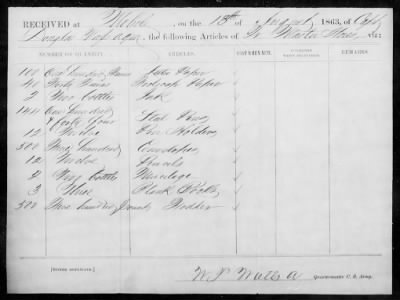 RECEIVED at Mobile, on the 18th of August 1863, of Capt
Douglas Vass, the following Articles of Qr Master Stores, viz:
No. ARTICLES.
100 One hundred Quires Letter Paper
40 Forty Quires Paper
2 Two Bottles Ink
144 One hundred
& forty four Steel Pens
12 Twelve Pen Holders
500 Five hundred Envelopes
12 Twelve Pencils
2 Two Bottles Mucilage
3 Three Blank Books
500 Five hundred pounds Fodder
[SIGNED DUPLICATES.] Quartermaster C. S. Army.